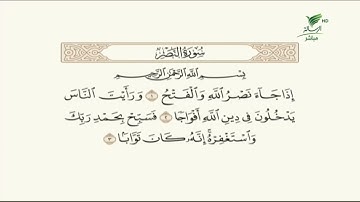 سُورَةُ النَّصْرِ
بِسْمِ اللَّهِ الرَّحْمَٰنِ الرَّحِيمِ
إِذَا جَآءَ نَصْرُ ٱللَّهِ وَٱلْفَتْحُ ١ وَرَأَيْتَ ٱلنَّاسَ
يَدْخُلُونَ فِى دِينِ ٱللَّهِ أَفْوَاجًا ٢ فَسَبِّحْ بِحَمْدِ رَبِّكَ
وَٱسْتَغْفِرْهُ إِنَّهُۥ كَانَ تَوَّابًۢا ٣
HD
مباشر